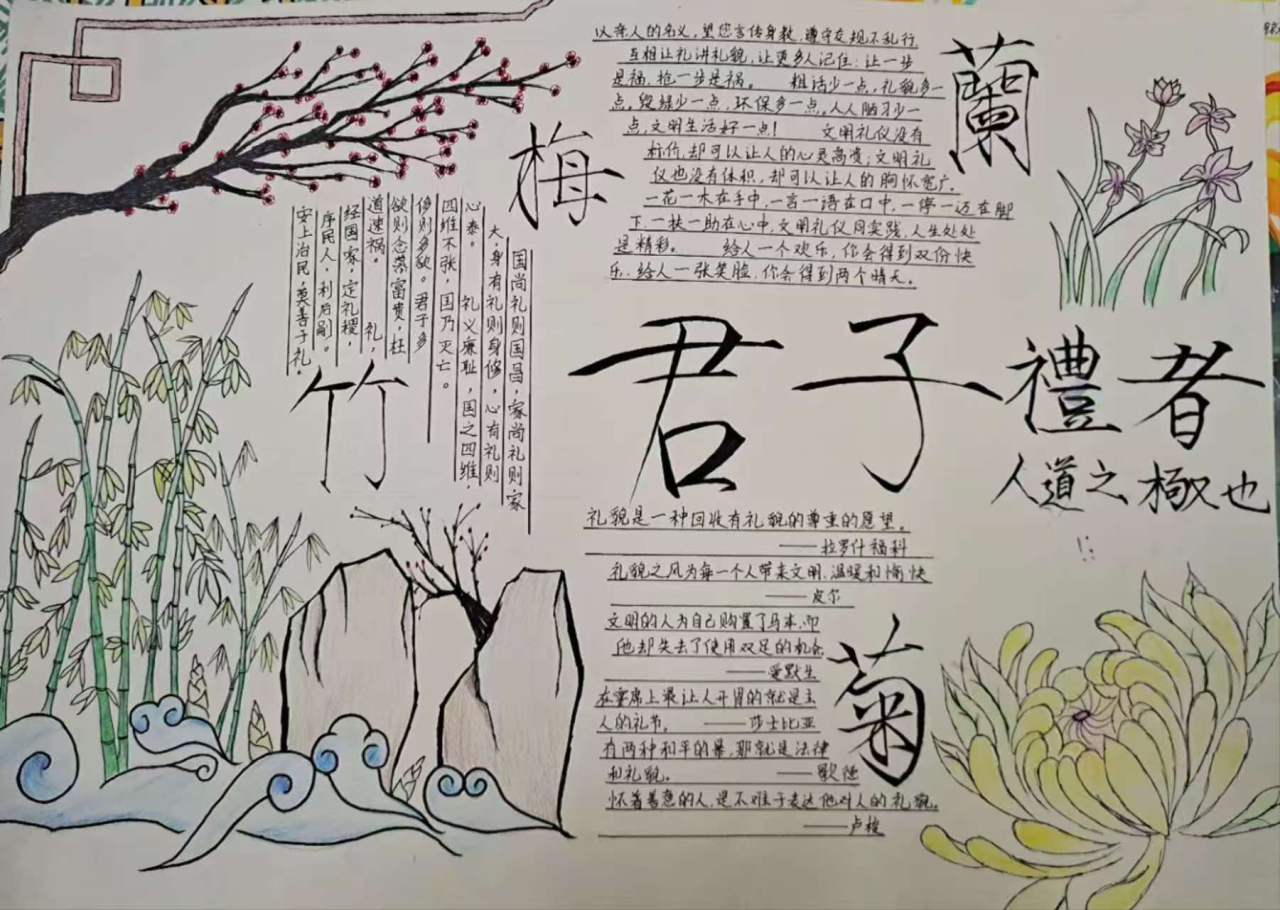 以亲人的名义,望您言传身教,遵守交规不乱行
互相让礼讲礼貌,让更多人记住:让一步
是福,抢一步是祸。 粗话少一点,礼貌多一
点,毁绿少一点,环保多一点,人人陋习少一
点,文明生活好一点! 文明礼仪没有
标价,却可以让人的心灵高贵;文明礼
仪也没有体积,却可以让人的胸怀宽广。
一花一木在手中,一言一语在口中,一停一迈在脚
下,一扶一助在心中,文明礼仪同实践,人生处处
是精彩。 给人一个欢乐,你会得到双份快
乐,给人一张笑脸,你会得到两个晴天。
蘭
梅
国尚礼则国昌,家尚礼则家
大,身有礼则身修,心有礼则
心泰。 礼义廉耻,国之四维,
四维不张,国乃灭亡。
侈则多欲。君子多
欲则念慕富贵,枉
道速祸。 礼,
经国家,定礼稷,
序民人,利后嗣。
安上治民,莫善于礼。
竹
君子
禮者
人道之極也
礼貌是一种回收有礼貌的尊重的愿望。
——拉罗什福科
礼貌之风为每一个人带来文明、温暖和愉快
——皮尔
文明的人为自己购置了马车,而
他却失去了使用双足的机会
——爱默生
在宴席上最让人开胃的就是主
人的礼节。 ——莎士比亚
有两种和平的暴,那就是法律
和礼貌。 ——歌德
怀着善意的人,是不难于表达他对人的礼貌。
——卢梭
菊